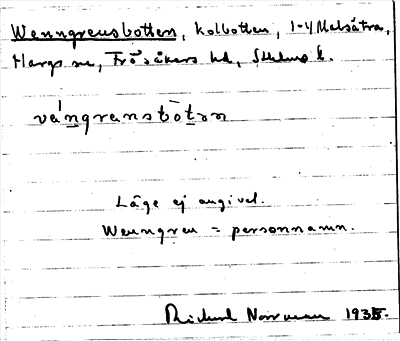 Wenngrensbotten, kolbotten, 1-4 Malsätra,
Hargs sn, Frösåkers hd, Sthlms l.
vángrensbòtən
Läge ej angivet.
Wenngren = personnamn.
Richard Norrman 1935.